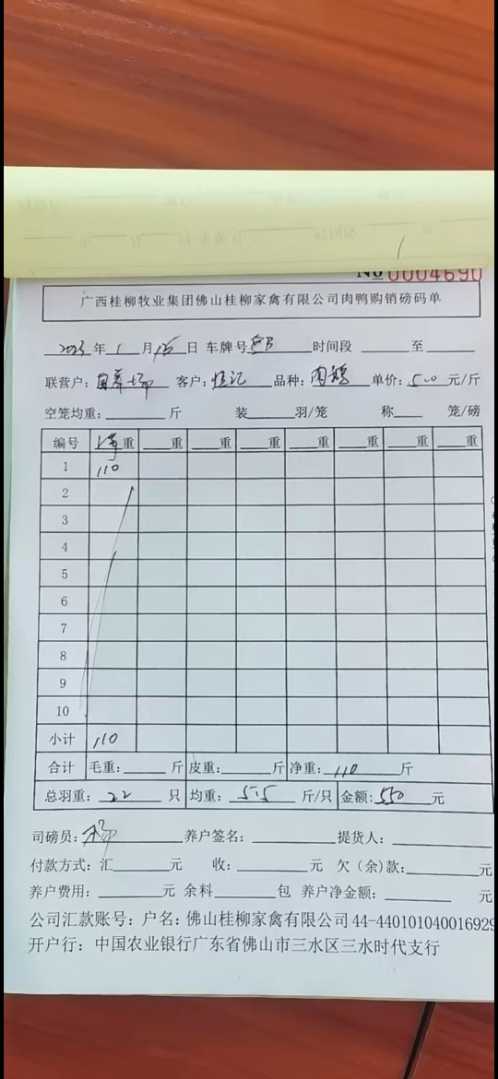 No 0004690
广西桂柳牧业集团佛山桂柳家禽有限公司肉鸭购销磅码单
年 1 月 15 日 车牌号 时间段 至
联营户: 自养场 客户: 恒记 品种: 肉鸭 单价: 5.00 元/斤
空笼均重: 斤 装 羽/笼 称 笼/磅
编号 净重 重 重 重 重 重 重 重
1 110
2
3
4
5
6
7
8
9
10
小计 110
合计 毛重: 斤 皮重: 斤 净重: 110 斤
总羽重: 22 只 均重: 5.5 斤/只 金额: 550 元
司磅员: 杨 养户签名: 提货人:
付款方式: 汇 元 收: 元 欠（余)款: 元
养户费用: 元 余料 包 养户净金额: 元
公司汇款账号: 户名: 佛山桂柳家禽有限公司 44-440101040016929
开户行: 中国农业银行广东省佛山市三水区三水时代支行